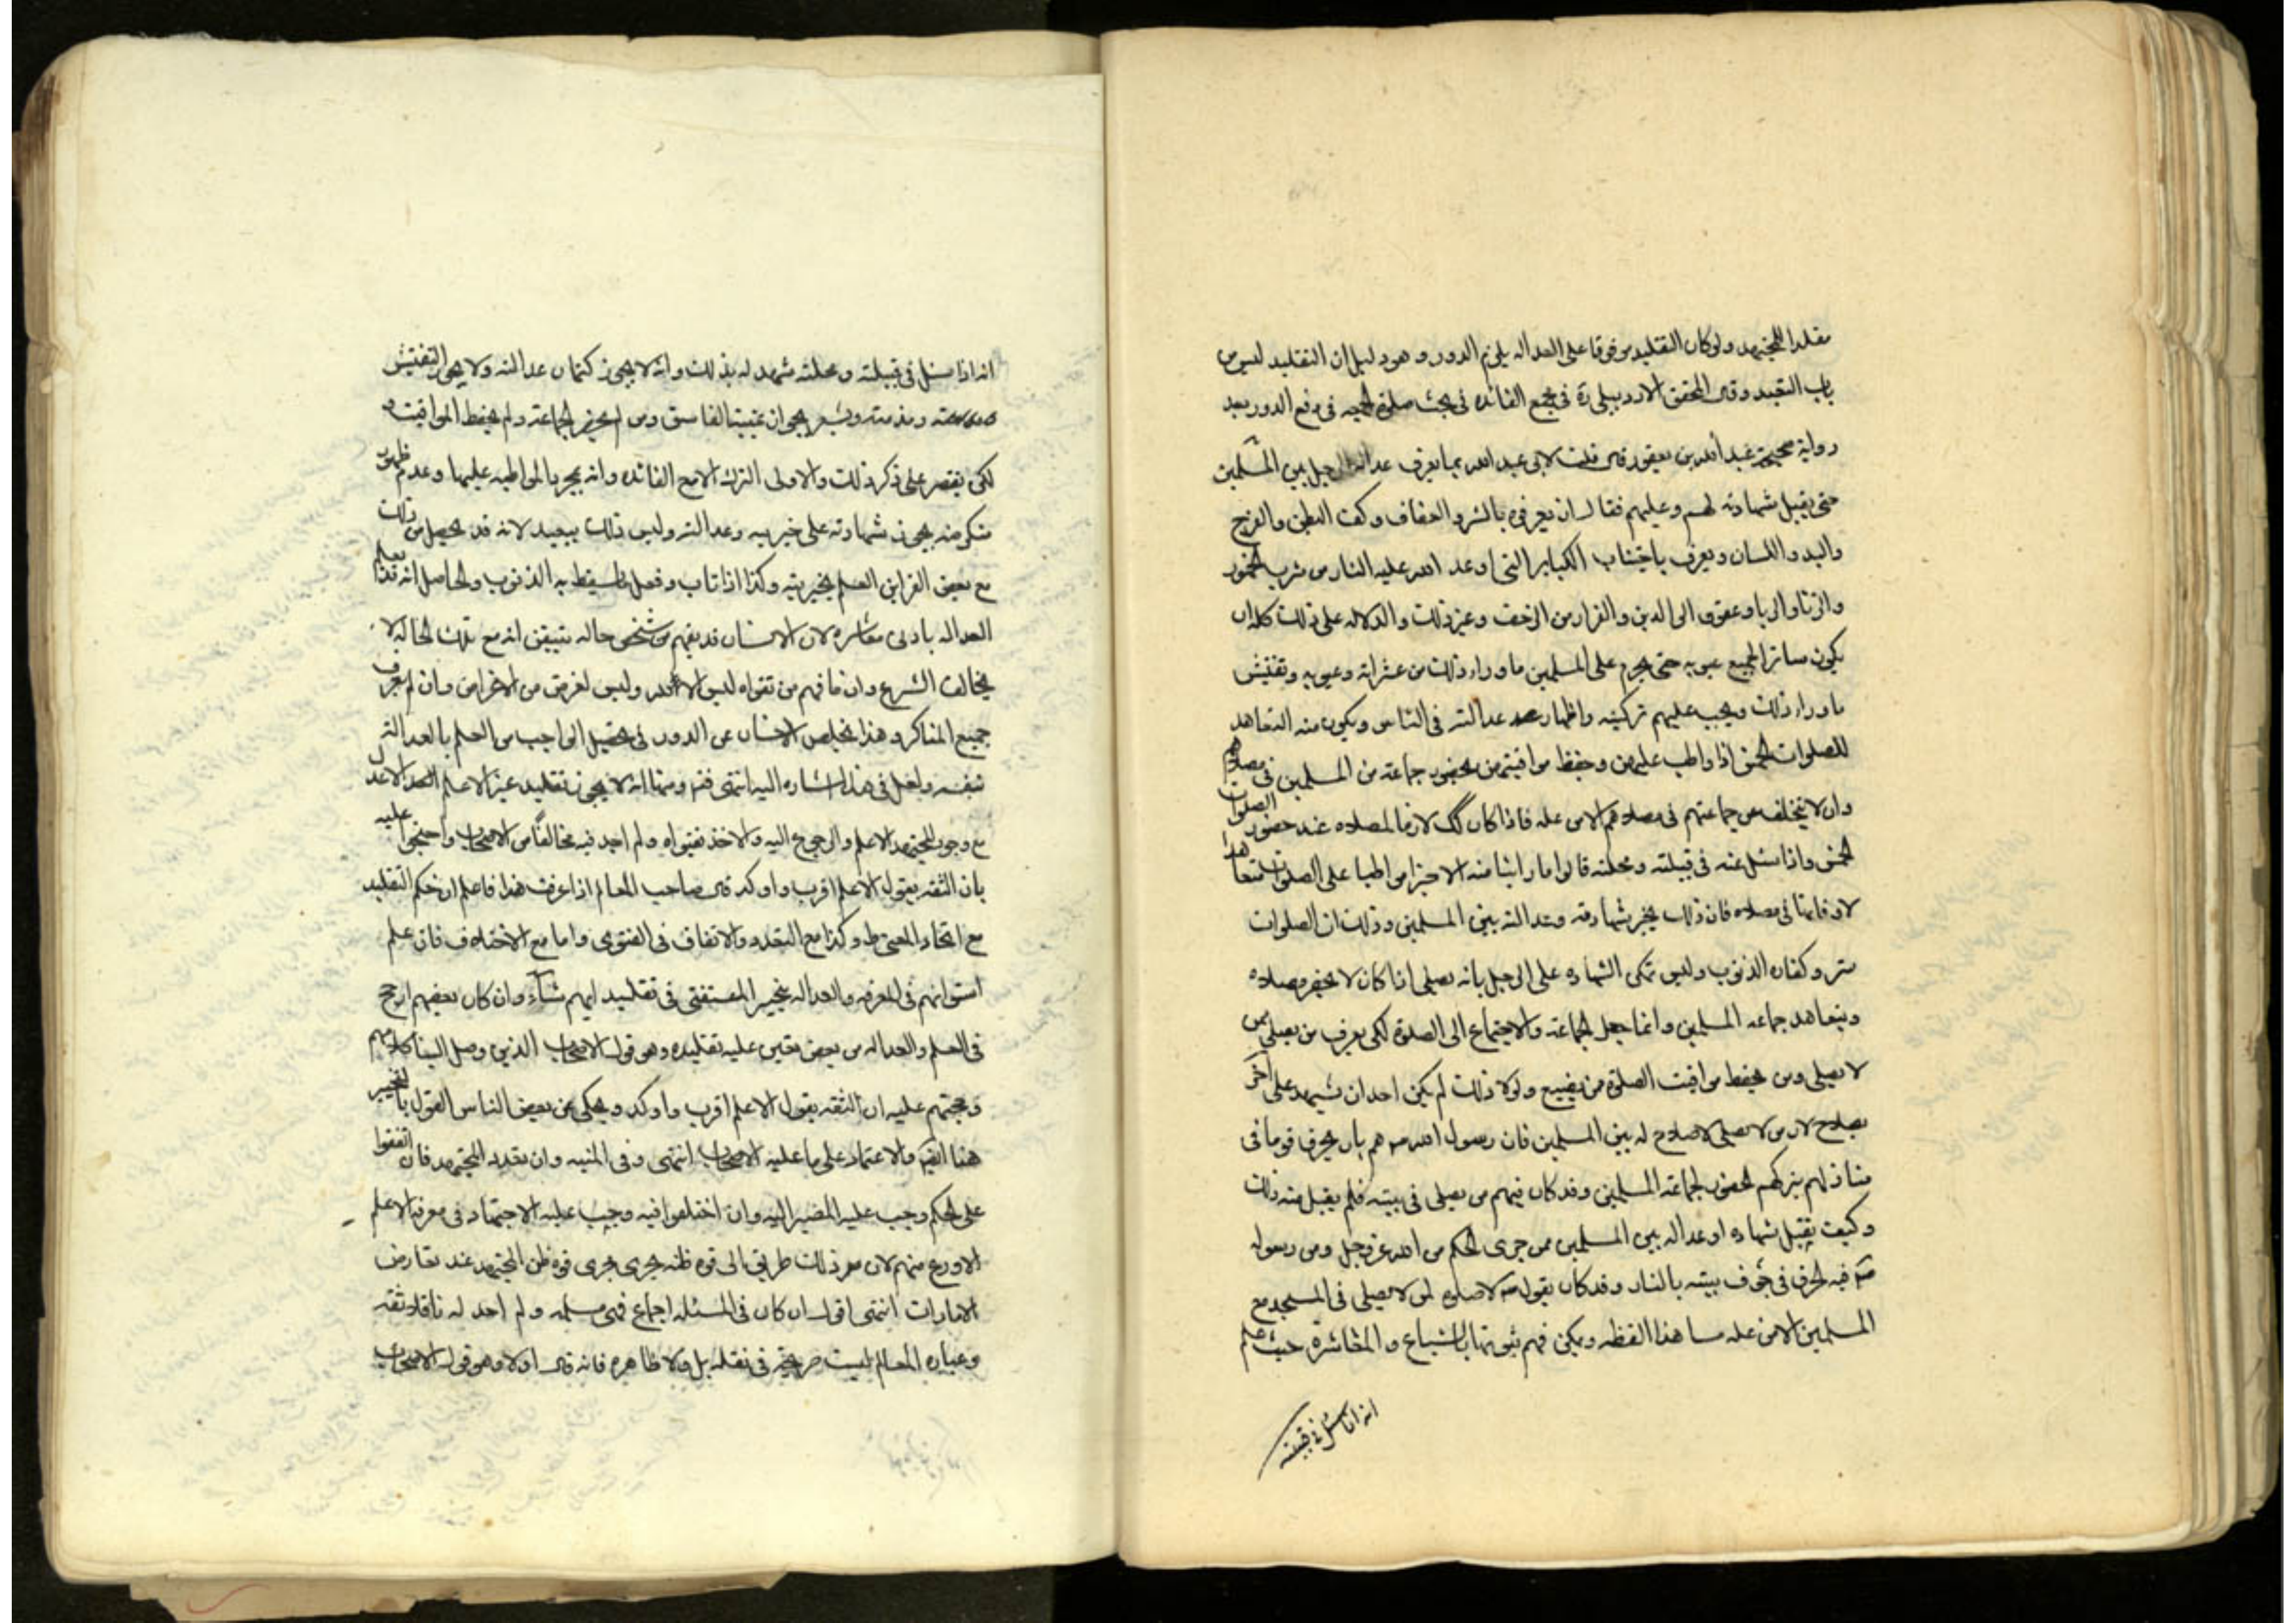 مقلدا للمجتهد ولو كان التقليد موقوفا على العداله يلزم الدور وهو دليل ان التقليد ليس من
باب التقييد وقال المحقق الاردبيلى ره فى مجمع الفائده فى بحث صلوة الجمعه فى دفع الدور بعد
رواية صحيحة عبد الله بن يعفور قال قلت لابى عبد الله بما يعرف عدالة الرجل بين المسلمين
حتى يقبل شهادته لهم وعليهم فقال ان يعرفوه بالستر والعفاف وكف البطن والفرج
واليد واللسان ويعرف باجتناب الكباير التى اوعد الله عليه النار من شرب الخمور
والزنا والربا وعقوق الوالدين والفرار من الزحف وغير ذلك والدلاله على ذلك كله ان
يكون ساترا لجميع عيوبه حتى يحرم على المسلمين ما وراء ذلك من عثراته وعيوبه وتفتيش
ما وراء ذلك ويجب عليهم تزكيته واظهار عدالته فى الناس ويكون منه التعاهد
للصلوات الخمس اذا واظب عليهن وحفظ مواقيتهن بحضور جماعة من المسلمين فى مصلاهم
وان لا يتخلف عن جماعتهم فى مصلاهم الا من عله فاذا كان كك لازما لمصلاه عند حضور الصلوات
الخمس واذا سئل عنه فى قبيلته ومحلته قالوا ما راينا منه الا خيرا مواظبا على الصلوات متعاهدا
لاوقاتها فى مصلاه فان ذلك يجيز شهادته وعدالته بين المسلمين وذلك ان الصلوات
ستر وكفاره الذنوب وليس تمكن الشهاده على الرجل بانه يصلى اذا كان لا يحضر مصلاه
ويتعاهد جماعه المسلمين وانما جعل الجماعة والاجتماع الى الصلوة لكى يعرف من يصلى ممن
لا يصلى ومن يحفظ مواقيت الصلوة ممن يضيع ولولا ذلك لم يكن احد ان يشهد على آخر
بصلاح لان من لا يصلى لا صلاح له بين المسلمين فان رسول الله ص هم بان يحرق قوما فى
منازلهم بتركهم لحضور جماعة المسلمين وقد كان فيهم من يصلى فى بيته فلم يقبل منه ذلك
وكيف يقبل شهاده او عداله بين المسلمين ممن جرى الحكم من الله عز وجل ومن رسوله
ص فيه الحرق فى جوف بيته بالنار وقد كان يقول ص لا صلوه لمن لا يصلى فى المسجد مع
المسلمين الا من عله هذا لفظه ويمكن فهم ثبوتها بالشياع والمعاشرة حيث علم
انه اذا سئل فى قبيلته
انه اذا سئل فى قبيلته ومحلته شهد له بذلك وانه لا يجوز كتمان عدالته ولا يجوز التفتيش
ومذمته ويشعر بجواز غيبة الفاسق ومن لم يحضر الجماعة ولم يحفظ المواقيت و
لكن يقتصر على ذكر ذلك والاولى الترك الا مع الفائده وانه بمجرد المواظبه عليها وعدم ظهور
منكر منه يجوز شهادته على خيريته وعدالته وليس ذلك ببعيد لانه قد يحصل من ذلك
مع بعض القراين العلم بخيريته وكذا اذا تاب وفعل ما يسقط به الذنوب والحاصل انه قد يعلم
العداله بادنى معاشره لان الانسان قد يفهم من شخص حاله بتيقن انه مع تلك الحاله لا
يخالف الشرع وان ما فهم من تقواه ليس الا لله وليس لغرض من الاغراض وان لم يعرف
جميع المناكر وهذا يخلص الانسان عن الدور فى تحصيل الواجب من العلم بالعدالته
نفسه ولعل فى هذا اشاره اليه انتهى فتم ومنها انه لا يجوز تقليد غير الاعلم الاعدل
مع وجود المجتهد الاعلم والرجوع اليه والاخذ بفتواه ولم اجد فيه مخالفا من الاصحاب واحتجوا عليه
بان الثقه بقول الاعلم اقرب واوكد قال صاحب المعالم اذا عرفت هذا فاعلم ان حكم التقليد
مع اتحاد المفتى ظ وكذا مع التعدد والاتفاق فى الفتوى واما مع الاختلاف فان علم
استوائهم فى المعرفه والعداله يتخير المستفتى فى تقليد ايهم شاء وان كان بعضهم ارجح
فى العلم والعداله من بعض تعين عليه تقليده وهو قول الاصحاب الذين وصل الينا كلامهم
وحجتهم عليه ان الثقه بقول الاعلم اقرب واوكد ويحكى عن بعض الناس القول بالتخيير
هنا ايضا والاعتماد على ما عليه الاصحاب انتهى وفى المنيه وان تعدد المجتهد فان اتفقوا
على الحكم وجب عليه المصير اليه وان اختلفوا فيه وجب عليه الاجتهاد فى معرفه الاعلم
الاورع منهم لان ذلك طريق الى قوه ظنه يجرى مجرى قوه ظن المجتهد عند تعارض
الامارات انتهى اقول ان كان فى المسئله اجماع فهى مسلمه ولم احد له ناقلا ثقه
وعباره المعالم ليست صريحة فى نقله بل ولا ظاهره فانه قال اولا وهو قول الاصحاب